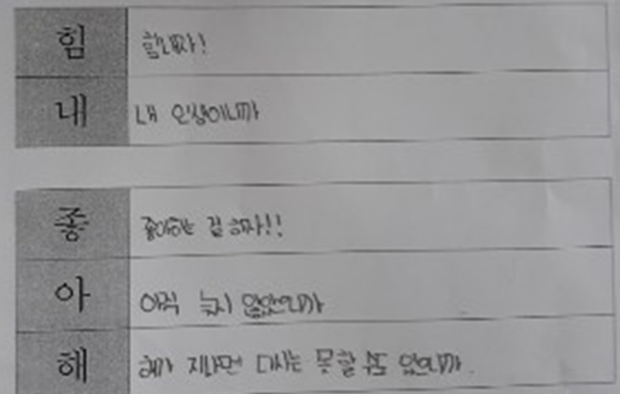 힘 힘내자!
내 내 인생이니까
좋 좋아하는 걸 하자!!
아 아직 늦지 않았으니까
해 해가 지나면 다시는 못할 수도 있으니까.